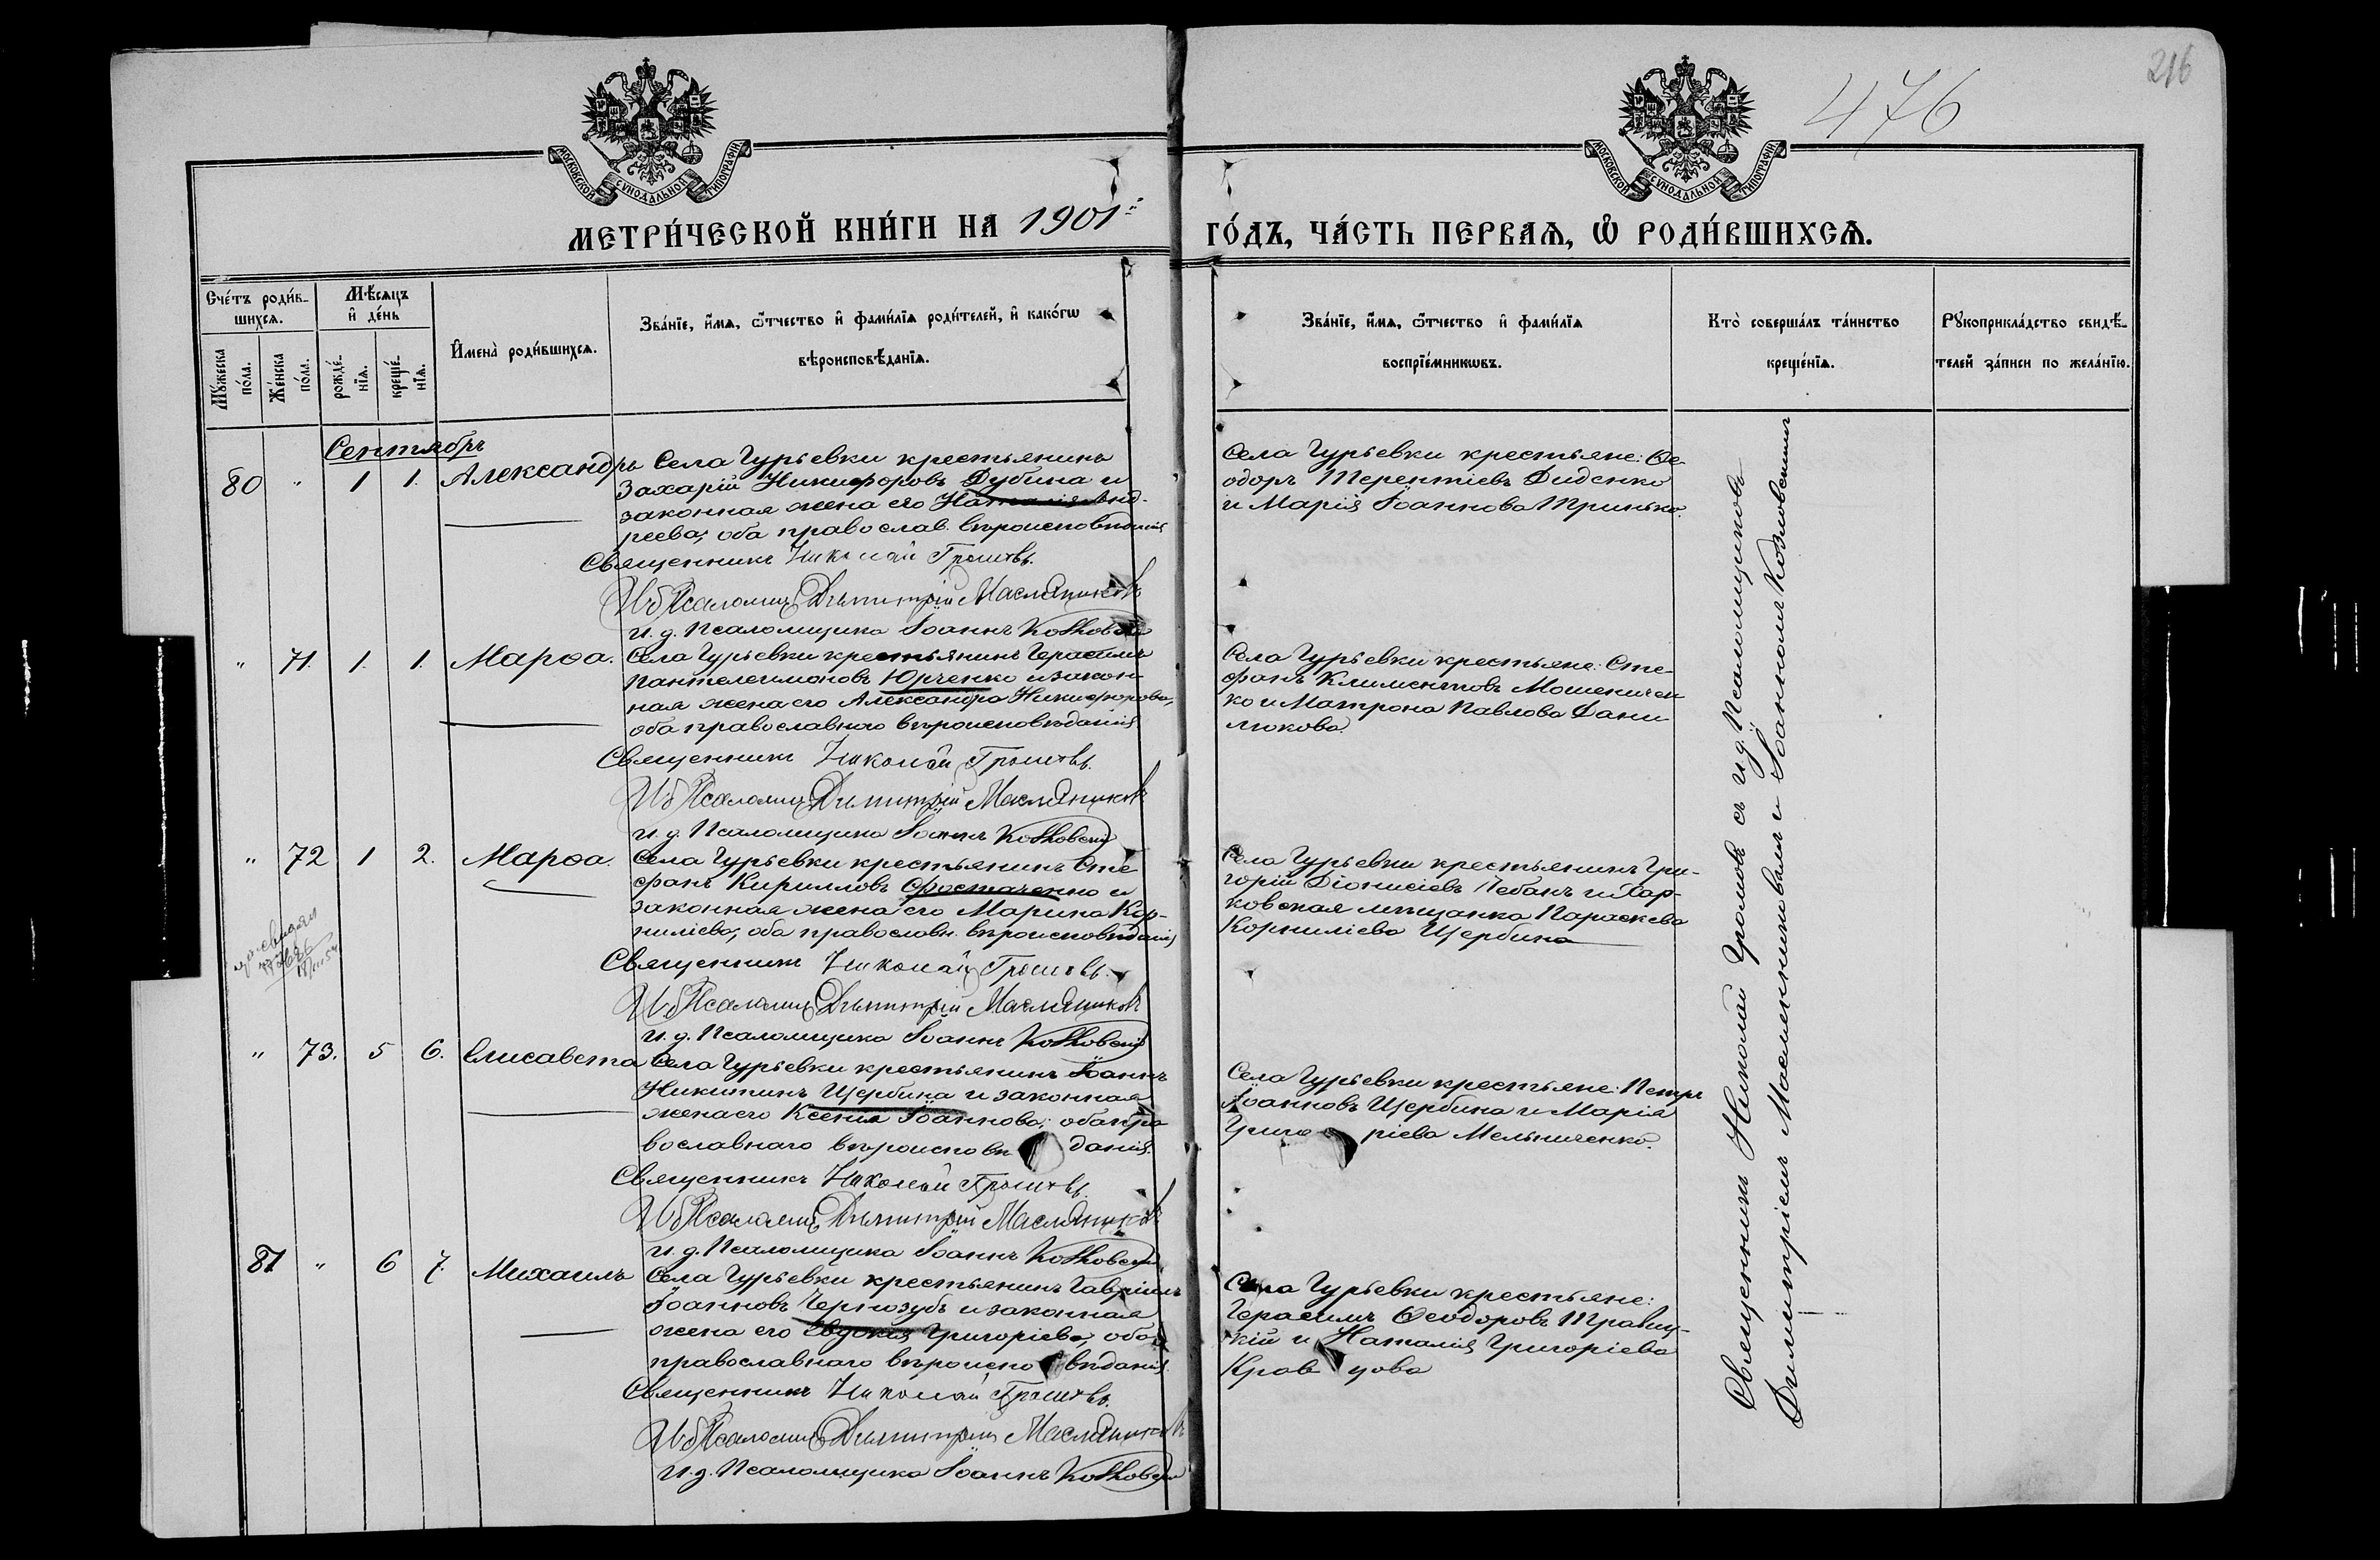 216
476
МОСКОВСКОЙ СѴНОДАЛЬНОЙ ТИПОГРАФІИ
МОСКОВСКОЙ СѴНОДАЛЬНОЙ ТИПОГРАФІИ
МЕТРИ́ЧЕСКОЙ КНИ́ГИ НА 1901 й
ГО́ДЪ, ЧА́СТЬ ПЕРВАѦ, Ѡ РОДИ́ВШИХСѦ.
Сче́тъ роди́в-
шихсѧ.
Мѣ́сѧцъ
и҆ де́нь
Мꙋ́жеска
по́ла.
Же́нска
по́ла.
рожде́-
нїѧ.
креще́-
нїѧ.
И҆мена̀ роди́вшихсѧ.
Зва́нїе, и҆́мѧ, ѻ҆́тчество и҆ фами́лїѧ роди́телей, и҆ како́гѡ
вѣроисповѣ́данїѧ.
Зва́нїе, и҆́мѧ, ѻ҆́тчество и҆ фами́лїѧ
воспрїе́мникѡвъ.
Кто̀ соверша́лъ та́инство
креще́нїѧ.
Рꙋкоприкла́дство свидѣ́-
телей за́писи по жела́нїю.
Сентябрь
80 " 1 1. Александръ
Села Гурьевки крестьянинъ
Захарій Никифоровъ Дубина и
законная жена его Наталія Анд-
реева, оба православ. вѣроисповѣданія
Священникъ Николай Громовъ.
И д Псаломщ Димитрій Маслянниковъ
и. д. Псаломщика Іоаннъ Козловскій
Села Гурьевки крестьяне: Ѳе
одоръ Терентіевъ Диденко
и Марія Іоаннова Тринько.
" 71. 1. 1. Марѳа.
Села Гурьевки крестьянинъ Герасимъ
Пантелеимоновъ Юрченко и закон-
ная жена его Александра Никифорова,
оба православнаго вѣроисповѣданія
Священникъ Николай Громовъ.
И д Псаломщ Димитрій Маслянниковъ
и. д. Псаломщика Іоаннъ Козловскій
Села Гурьевки крестьяне: Сте
фанъ Климентовъ Мошеничен
ко и Матрона Павлова Дани
люкова.
" 72 1 2. Марѳа.
Села Гурьевки крестьянинъ Сте
фанъ Кирилловъ Сфостаченко и
законная жена его Марина Кор-
нилiева, оба православн. вѣроисповѣданія
Священникъ Николай Громовъ.
И д Псаломщ Димитрій Маслянниковъ
и. д. Псаломщика Іоаннъ Козловскій
Села Гурьевки крестьянинъ Гри-
горій Діонисіевъ Чебанъ и Хар-
ковская мѣщанка Параскева
Корниліева Щербина
" 73. 5 6. Елисавета
Села Гурьевки крестьянинъ Іоаннъ
Никитинъ Щербина и законная
жена его Ксенія Іоаннова, оба пра
вославнаго вѣроисповѣ данія.
Священникъ Николай Громовъ.
И д Псаломщ Димитрій Маслянниковъ
и. д. Псаломщика Іоаннъ Козловскій
Села Гурьевки крестьяне: Петръ
Іоанновъ Щербина и Марія
Григо ріева Мельниченко.
81 " 6 7. Михаилъ
Села Гурьевки крестьянинъ Гавріилъ
Іоанновъ Чернозубъ и законная
жена его Евдокія Григоріева, оба
православнаго вѣроиспо вѣданія
Священникъ Николай Громовъ.
И д Псаломщ Димитрій Маслянниковъ
и. д. Псаломщика Іоаннъ Козловскій
Села Гурьевки крестьяне:
Герасимъ Ѳеодоровъ Травиц-
кій и Наталія Григоріева
Крав цова
Священникъ Николай Громовъ съ и. д. Псаломщиковъ
Димитріемъ Маслянниковымъ и Іоанномъ Козловскимъ